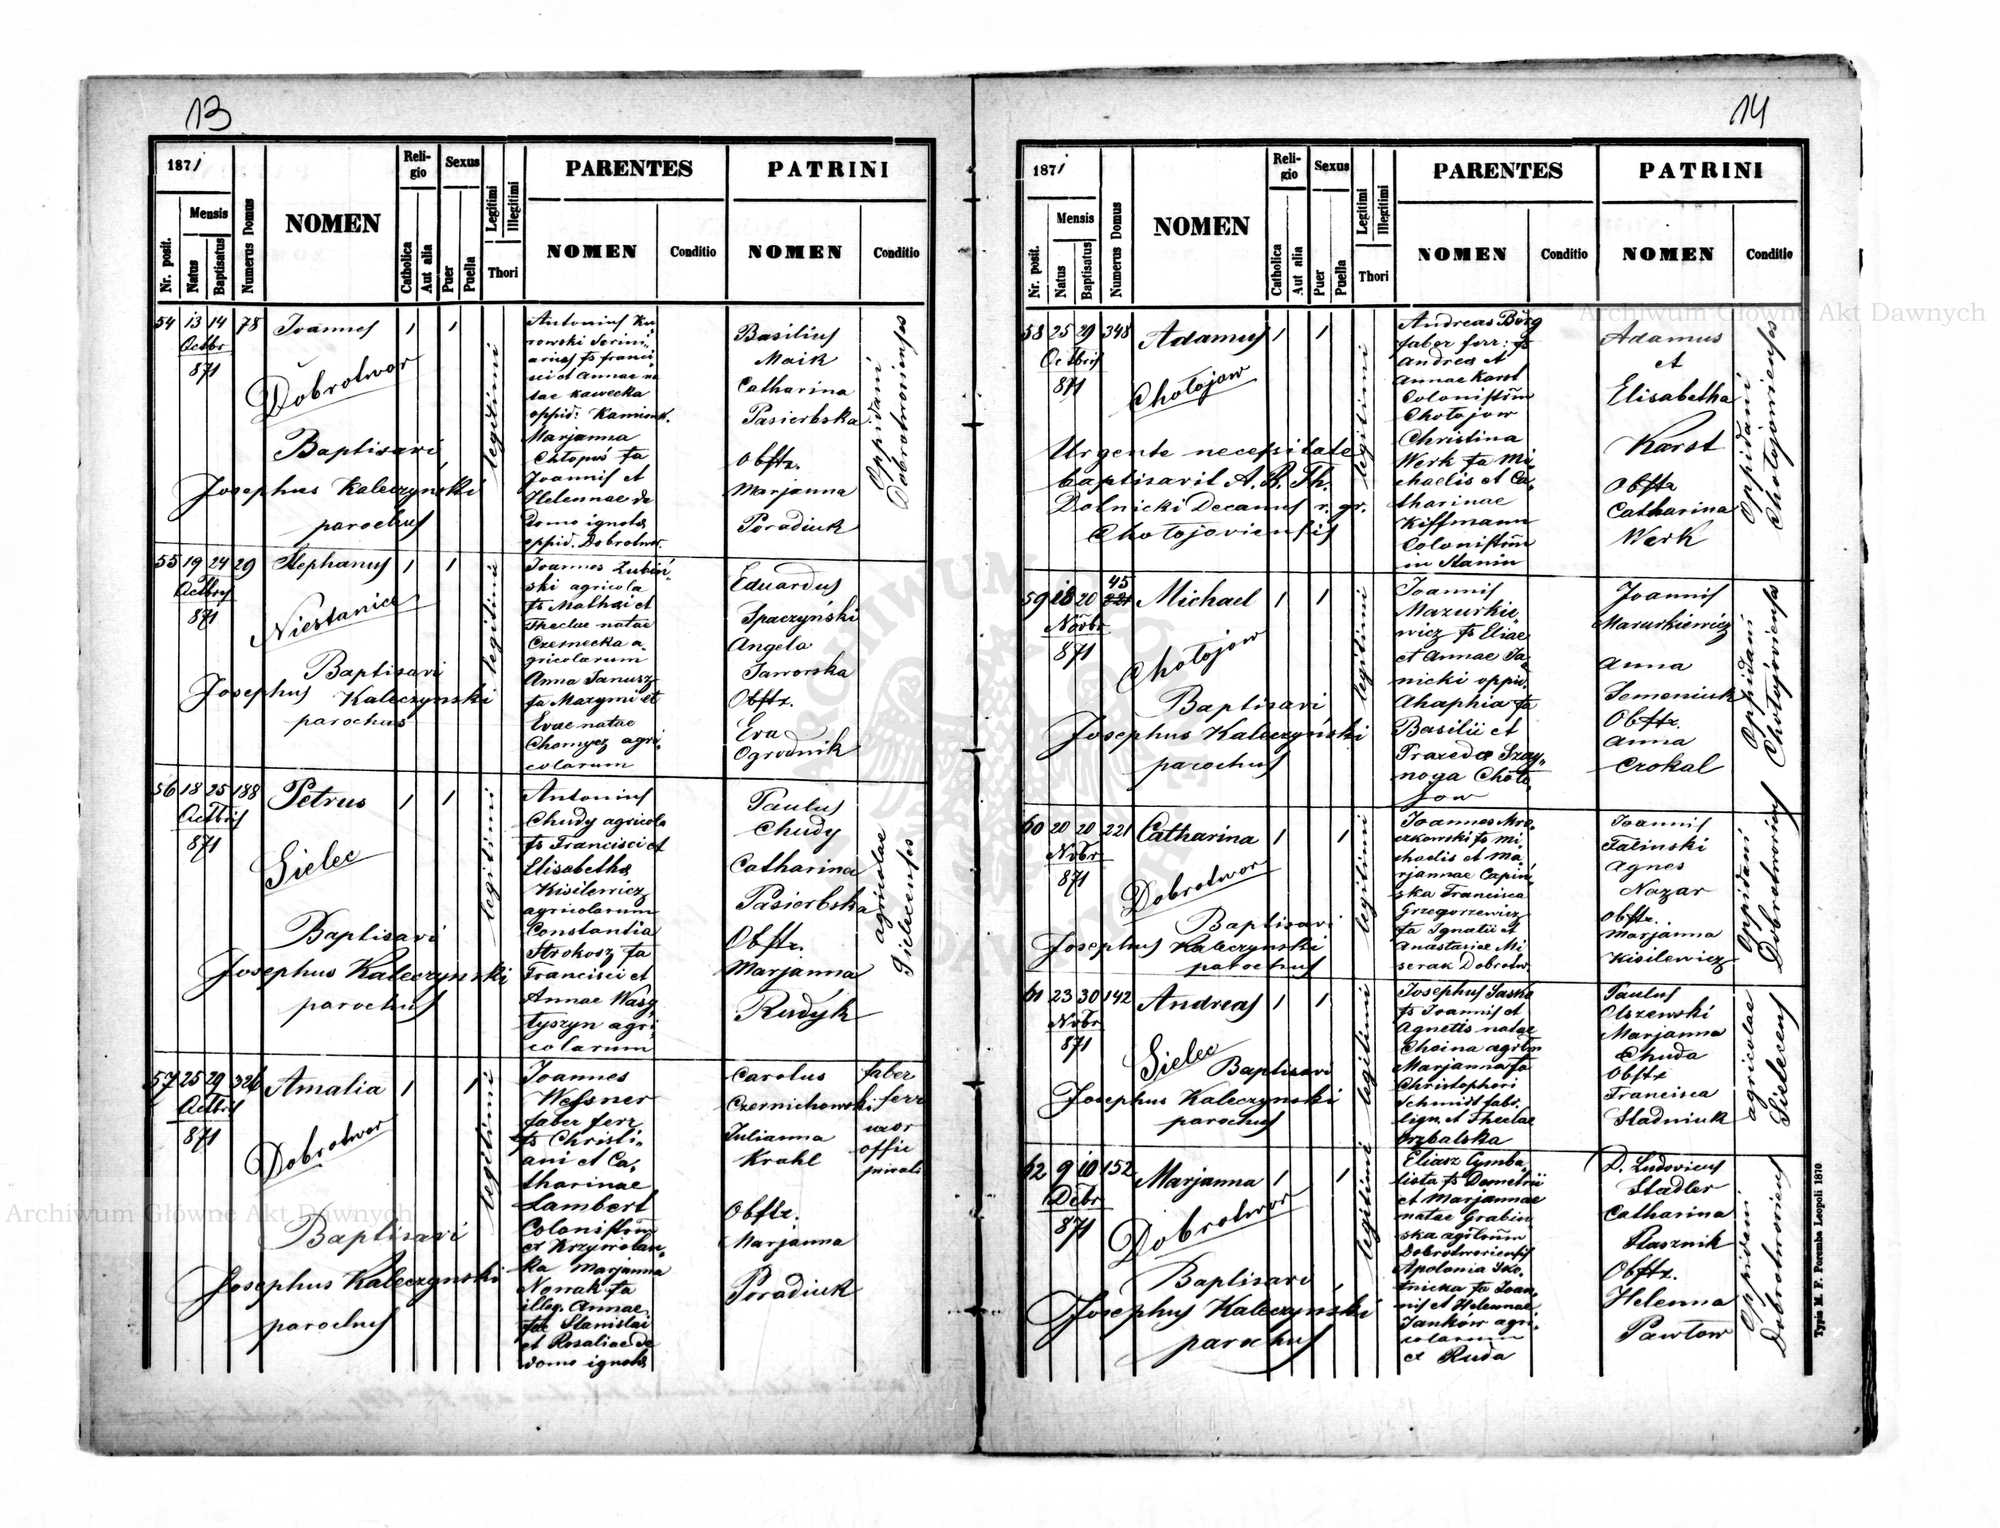 13
1871
Nr. posit.
Mensis
Natus
Baptisatus
Numerus Domus
NOMEN
Religio
Catholica
Aut alia
Sexus
Puer
Puella
Legitimi
Illegitimi
Thori
PARENTES
NOMEN
Conditio
PATRINI
NOMEN
Conditio
54 13 14 78 Joannes 1 1
Octbr
871
Dobrotwor
Baptisavi
Josephus Kaleczyński
parochus
legitimi
Antonius Ku-
rowski
arius fs Franci-
sci et Annae na
tae Kawecka
oppid: Kamionk.
Marjanna
Chłopuś fa
Joannis et
Helennae de
domo ignota
oppid. Dobrotwor.
Basilius
Maik
Catharina
Pasierbska
Obstz.
Marjanna
Poradiuk
Oppidani
Dobrotworienses
55 19 24 29 Stephanus 1 1
Octbris
871
Niestanice
Baptisavi
Josephus
Kaleczynski
parochus
legitimi
Joannes Lubiń-
ski agricola
fs Mathei et
Theclae natae
Czernecka a-
gricolarum
Anna Janusz
fa Maxymi et
Evae natae
Chomycz agri-
colarum
Eduardus
Spaczyński
Angela
Jaworska
Obstz.
Eva
Ogrodnik
56 18 25 188 Petrus 1 1
Octbris
871
Sielec
Baptisavi
Josephus Kaleczynski
parochus
legitimi
Antonius
Chudy agricola
fs Francisci et
Elisabetha
Kisilewicz
agricolarum
Constantia
Strokosz fa
Francisci et
Annae Wasy
tyszyn agri
colarum
Paulus
Chudy
Catharina
Pasierbska
Obstz.
Marjanna
Rudyk
agricolae
Sielecenses
57 25 29 326 Amalia 1 1
Octbris
871
Dobrotwor
Baptisavi
Josephus Kaleczynski
parochus
legitimi
Joannes
Wessner
faber ferr
fs Christi-
ani et Ca-
tharinae
Lambert
Colonistrum
ex Krzywolan-
ka Marjanna
Nowak fa
illeg. Annae
fae Stanislai
et Rosaliae de
domo ignota
Carolus
Czernichowski
Julianna
Krahl
Obstz.
Marjanna
Poradiuk
faber
ferr
uxor
offic
privati
14
1871
Nr. posit.
Mensis
Natus
Baptisatus
Numerus Domus
NOMEN
Religio
Catholica
Aut alia
Sexus
Puer
Puella
Legitimi
Illegitimi
Thori
PARENTES
NOMEN
Conditio
PATRINI
NOMEN
Conditio
58 25 29 348 Adamus 1 1
Octbris
871
Chołojow
Urgente necessitate
baptisavit A. R. Th.
Dolnicki Decanus r. gr.
Chołojoviensis
legitimi
Andreas Börg
faber ferr: fs
Andrea et
Annae Karst
Colonistrum
Chołojow
Christina
Werk fa Mi-
chaelis et Ca-
tharinae
Kiffmann
Colonistrum
in Stanin
Adamus
et
Elisabetha
Karst
Obstz
Catharina
Werk
Oppidani
Chołojowienses
59 18 20 45 Michael 1 1
Novbr
871
Chołojow
Baptisavi
Josephus Kaleczyński
parochus
legitimi
Joannis
Mazurkie-
wicz fs Eliae
et Annae Ja-
nicki oppid.
Ahaphia fa
Basilii et
Praxeda Szay-
noga Choło-
jow
Joannis
Mazurkiewicz
Anna
Semeniuk
Obstz.
Anna
Czokal
Oppidani
Chołojowienses
60 20 20 221 Catharina 1 1
Nvbr
871
Dobrotwor
Baptisavi
Josephus Kaleczynski
parochus
legitimi
Joannes Mro-
czkowski fs Mi-
chaelis et Ma-
rjannae Capin-
ska Francisca
Grzegorzewicz
fa Ignatii et
Anastasiae Mi
serak Dobrotw.
Joannis
Falinski
Agnes
Nazar
Obstz.
Marjanna
Kisilewicz
Oppidani
Dobrotworienses
61 23 30 142 Andreas 1 1
Nvbr
871
Sielec
Baptisavi
Josephus Kaleczynski
parochus
legitimi
Josephus Saska
fs Joannis et
Agnetis natae
Choina agrlm
Marjanna fa
Christophori
Schmidt fabr.
lign. et Theclae
Grzbalska
Paulus
Olszewski
Marjanna
Chuda
Obstz
Francisca
Stadniuk
agricolae
Sielecens
62 9 10 152 Marjanna 1 1
Debr
871
Dobrotwor
Baptisavi
Josephus Kaleczyński
parochus
legitimi
Eliasz Cymba-
lista fs Demetrii
et Marjannae
natae Grabin-
ska agrlrum
Dobrotworiensis
Apolonia Sko-
tnicka fa Joan-
nis et Helennae
Jankow agri-
colarum
ex Ruda
D. Ludovicus
Stadler
Catharina
Stasznik
Obstz.
Helenna
Pawłow
Oppidani
Dobrotworiens
Typis M. F. Poremba Leopoli 1870
Archiwum Główne Akt Dawnych
Archiwum Główne Akt Dawnych